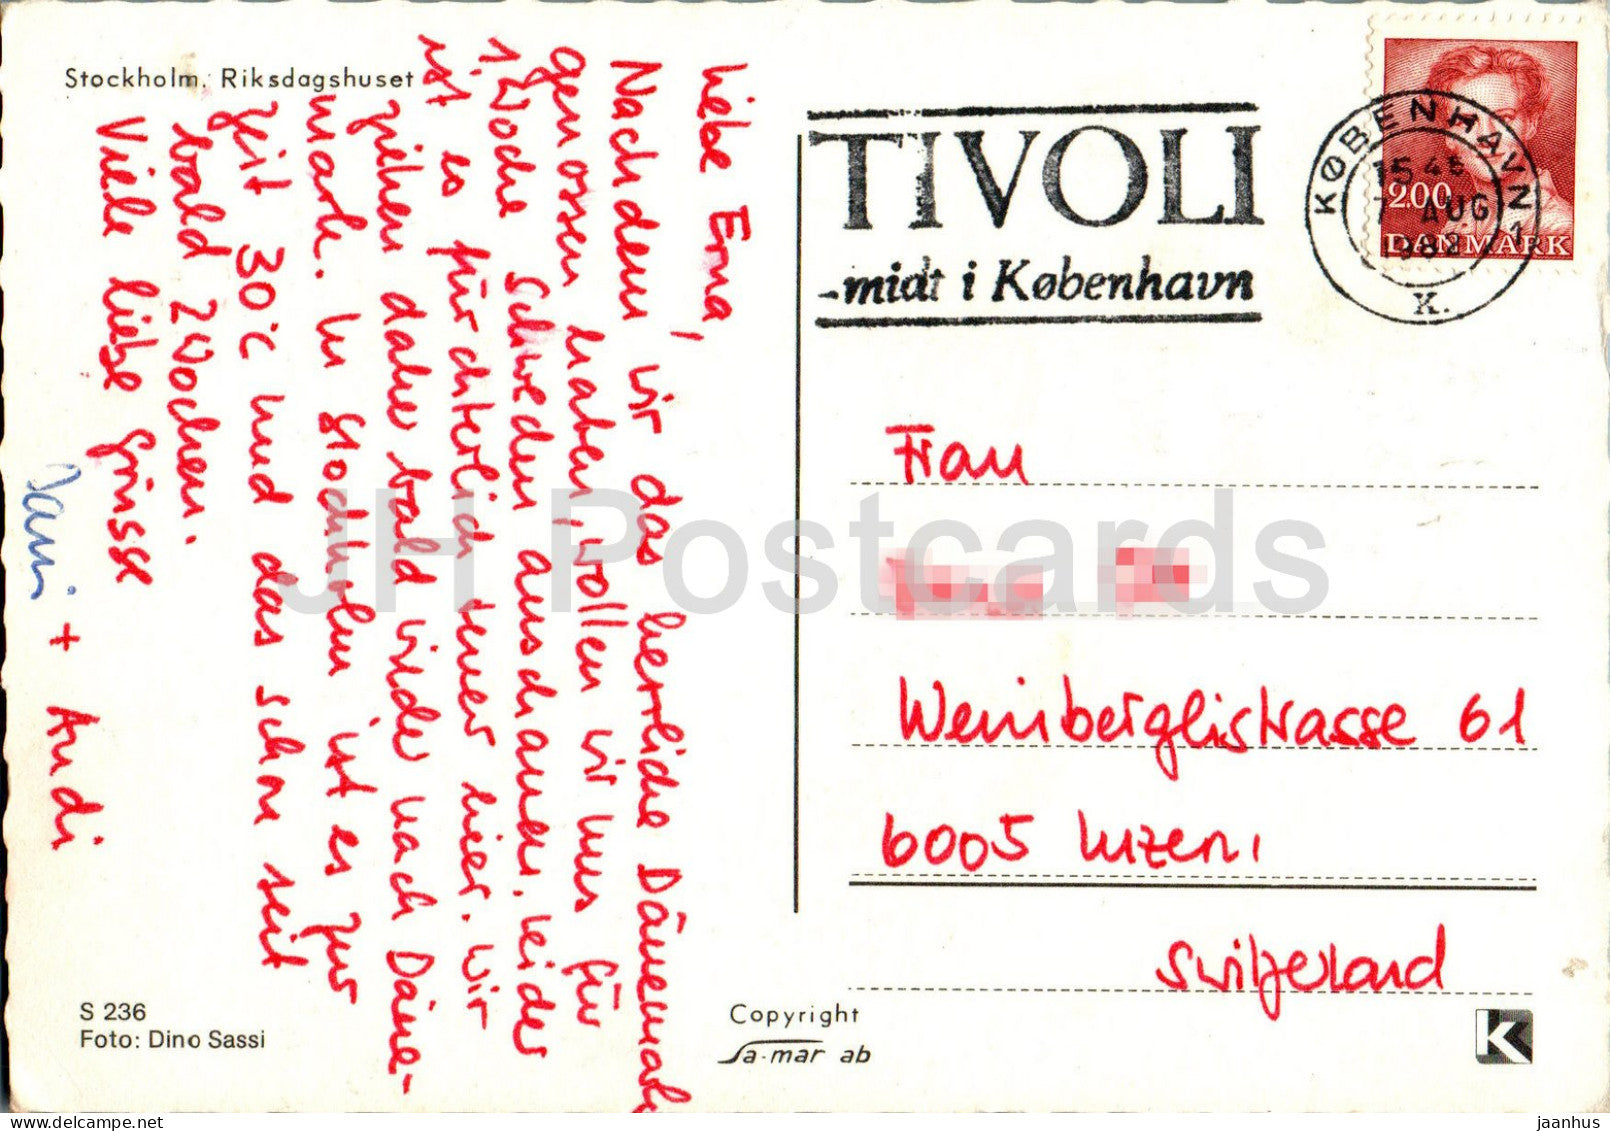 Stockholm, Riksdagshuset
Liebe Erna,
Nachdem wir das herrliche Dänemark
genossen haben, wollen wir uns für
1 Woche Schweden anschauen. Leider
ist es fürchterlich teuer hier. Wir
ziehen daher bald wieder nach Däne-
mark. In Stockholm ist es zur
Zeit 30°C und das schon seit
bald 2 Wochen.
Viele liebe Grüsse
Dani + Andi
S 236
Foto: Dino Sassi
Copyright
Sa-mar ab
K
TIVOLI
-midt i København
KØBENHAVN
15 45
7 AUG
1982
1
K.
2.00
DANMARK
Frau
Weinberglistrasse 61
6005 Luzern
Switzerland
JH Postcards
jaanhus